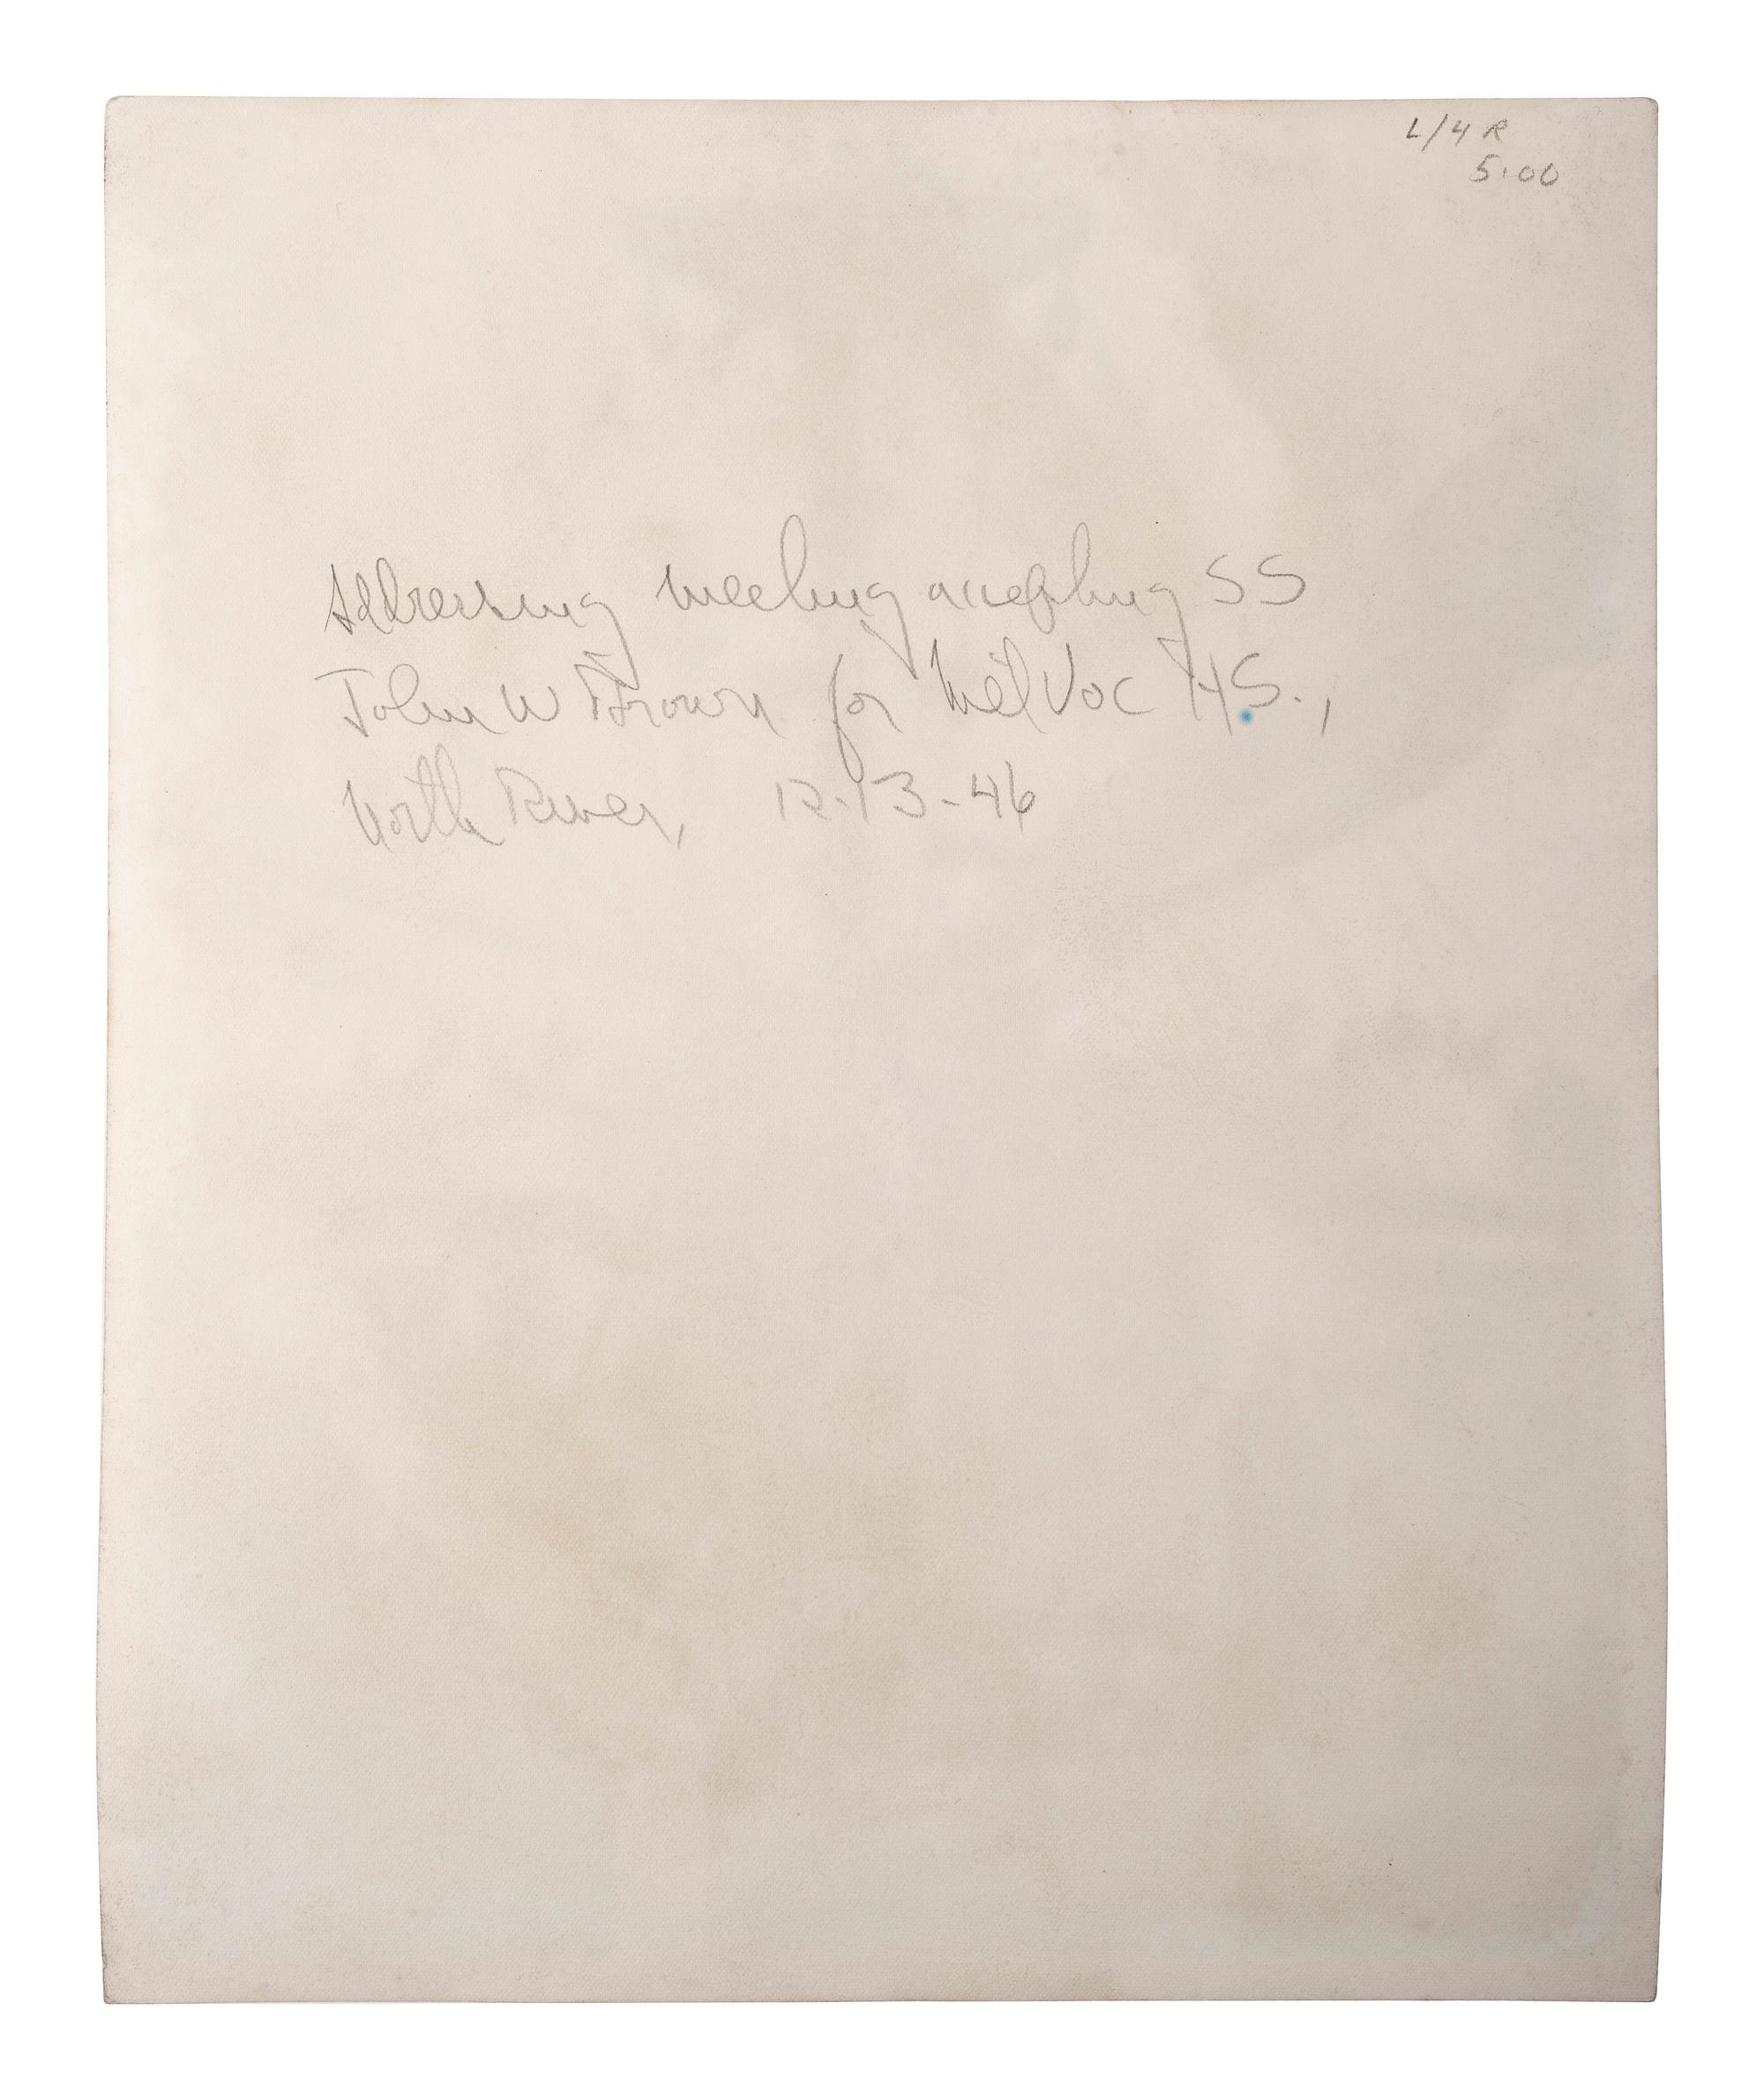 L/4 R
5.00
Addressing meeting accepting SS
John W Brown for Met Voc H.S.,
North River, 12-13-46